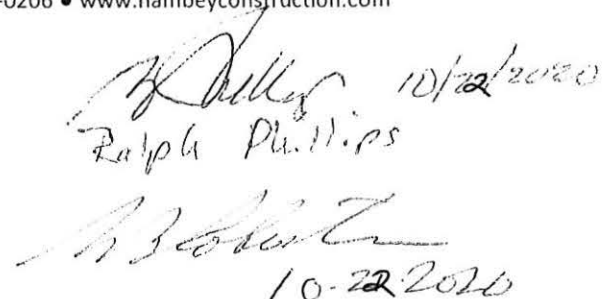 -0206 • www.hambeyconstruction.com
10/22/2020
Ralph Phillips
10-22-2020